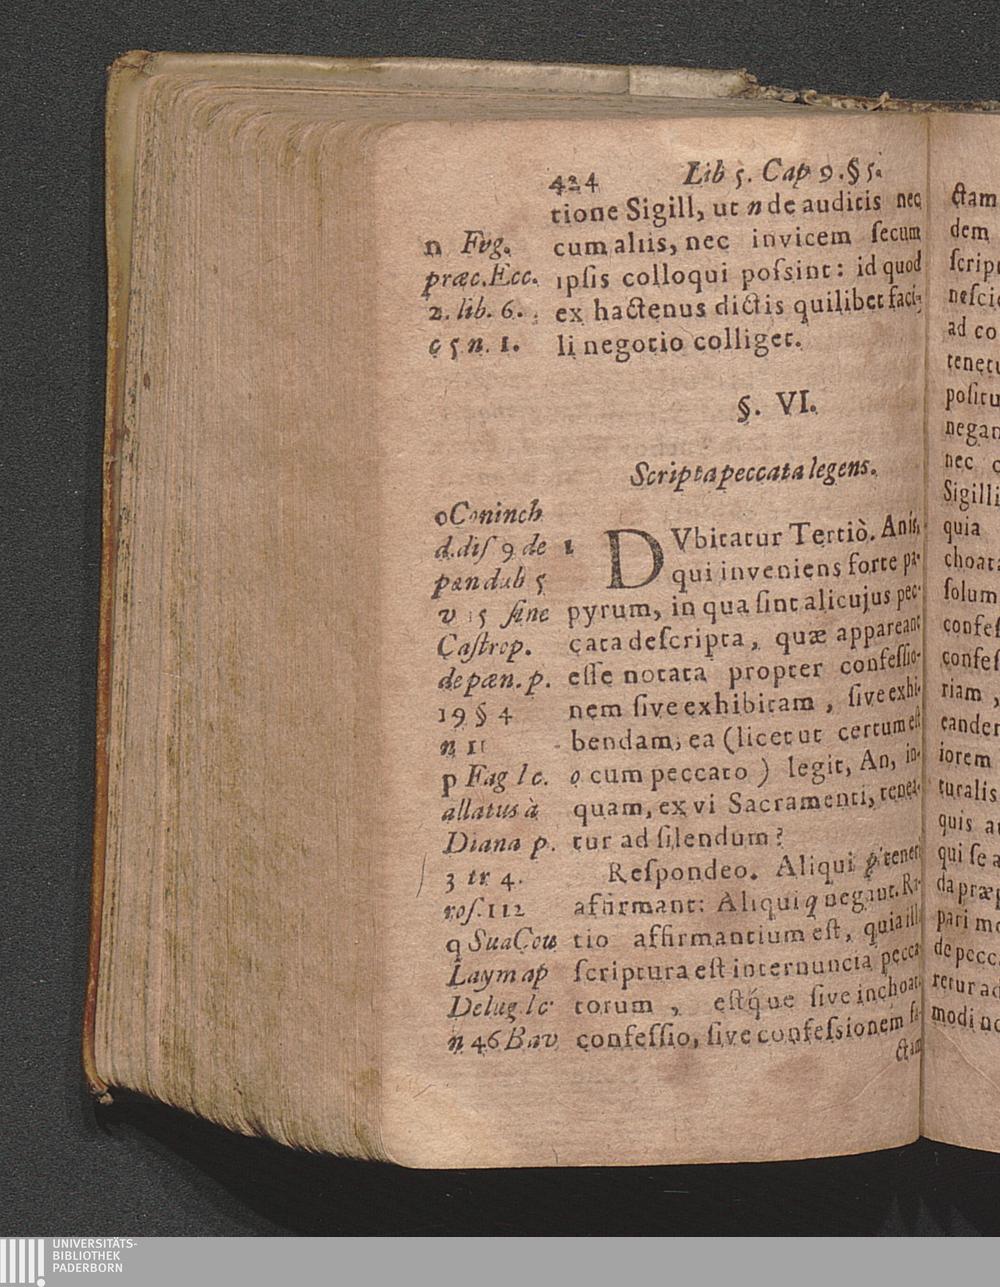 424 Lib 5. Cap 9. § 5.
tione Sigill, ut n de auditis nec
cum aliis, nec invicem ſecum
ipſis colloqui poſsint: id quod
ex hactenus dictis quilibet faci-
li negotio colliget.
n Fug.
præc. Ecc.
2. lib. 6.
c 5 n. 1.
§. VI.
Scripta peccata legens.
1 DVbitatur Tertiò. An is,
qui inveniens forte pa-
pyrum, in qua ſint alicujus pec-
cata deſcripta, quæ appareant
eſſe notata propter confeſſio-
nem ſive exhibitam, ſive exhi-
bendam, ea (licet ut certum eſt
o cum peccato) legit, An, in-
quam, ex vi Sacramenti, tenea-
tur ad ſilendum?
Reſpondeo. Aliqui p teneri
affirmant: Aliqui q negant. Ra-
tio affirmantium eſt, quia illa
ſcriptura eſt internuncia pecca-
torum, eſtq́ue ſive inchoata
confeſſio, ſive confeſsionem fa-
ctam
o Coninch
d. diſ 9 de
pæn dub 5
v 15 ſine
Caſtrop.
de pæn. p.
19 § 4
n 11
p Fag l c.
allatus à
Diana p.
3 tr 4.
reſ. 112
q Sua Cou
Laym ap
Delug. l c
n 46 Bav
ctam
dem
ſcript
neſcie
ad co
tenetu
poſitu
negan
nec
Sigilli
quia
choata
ſolum
confeſ
confeſ
riam,
eander
iorem
turalis
quis au
qui ſe a
da præp
pari mo
de pecc
retur ad
modi no
UNIVERSITÄTS-
BIBLIOTHEK
PADERBORN